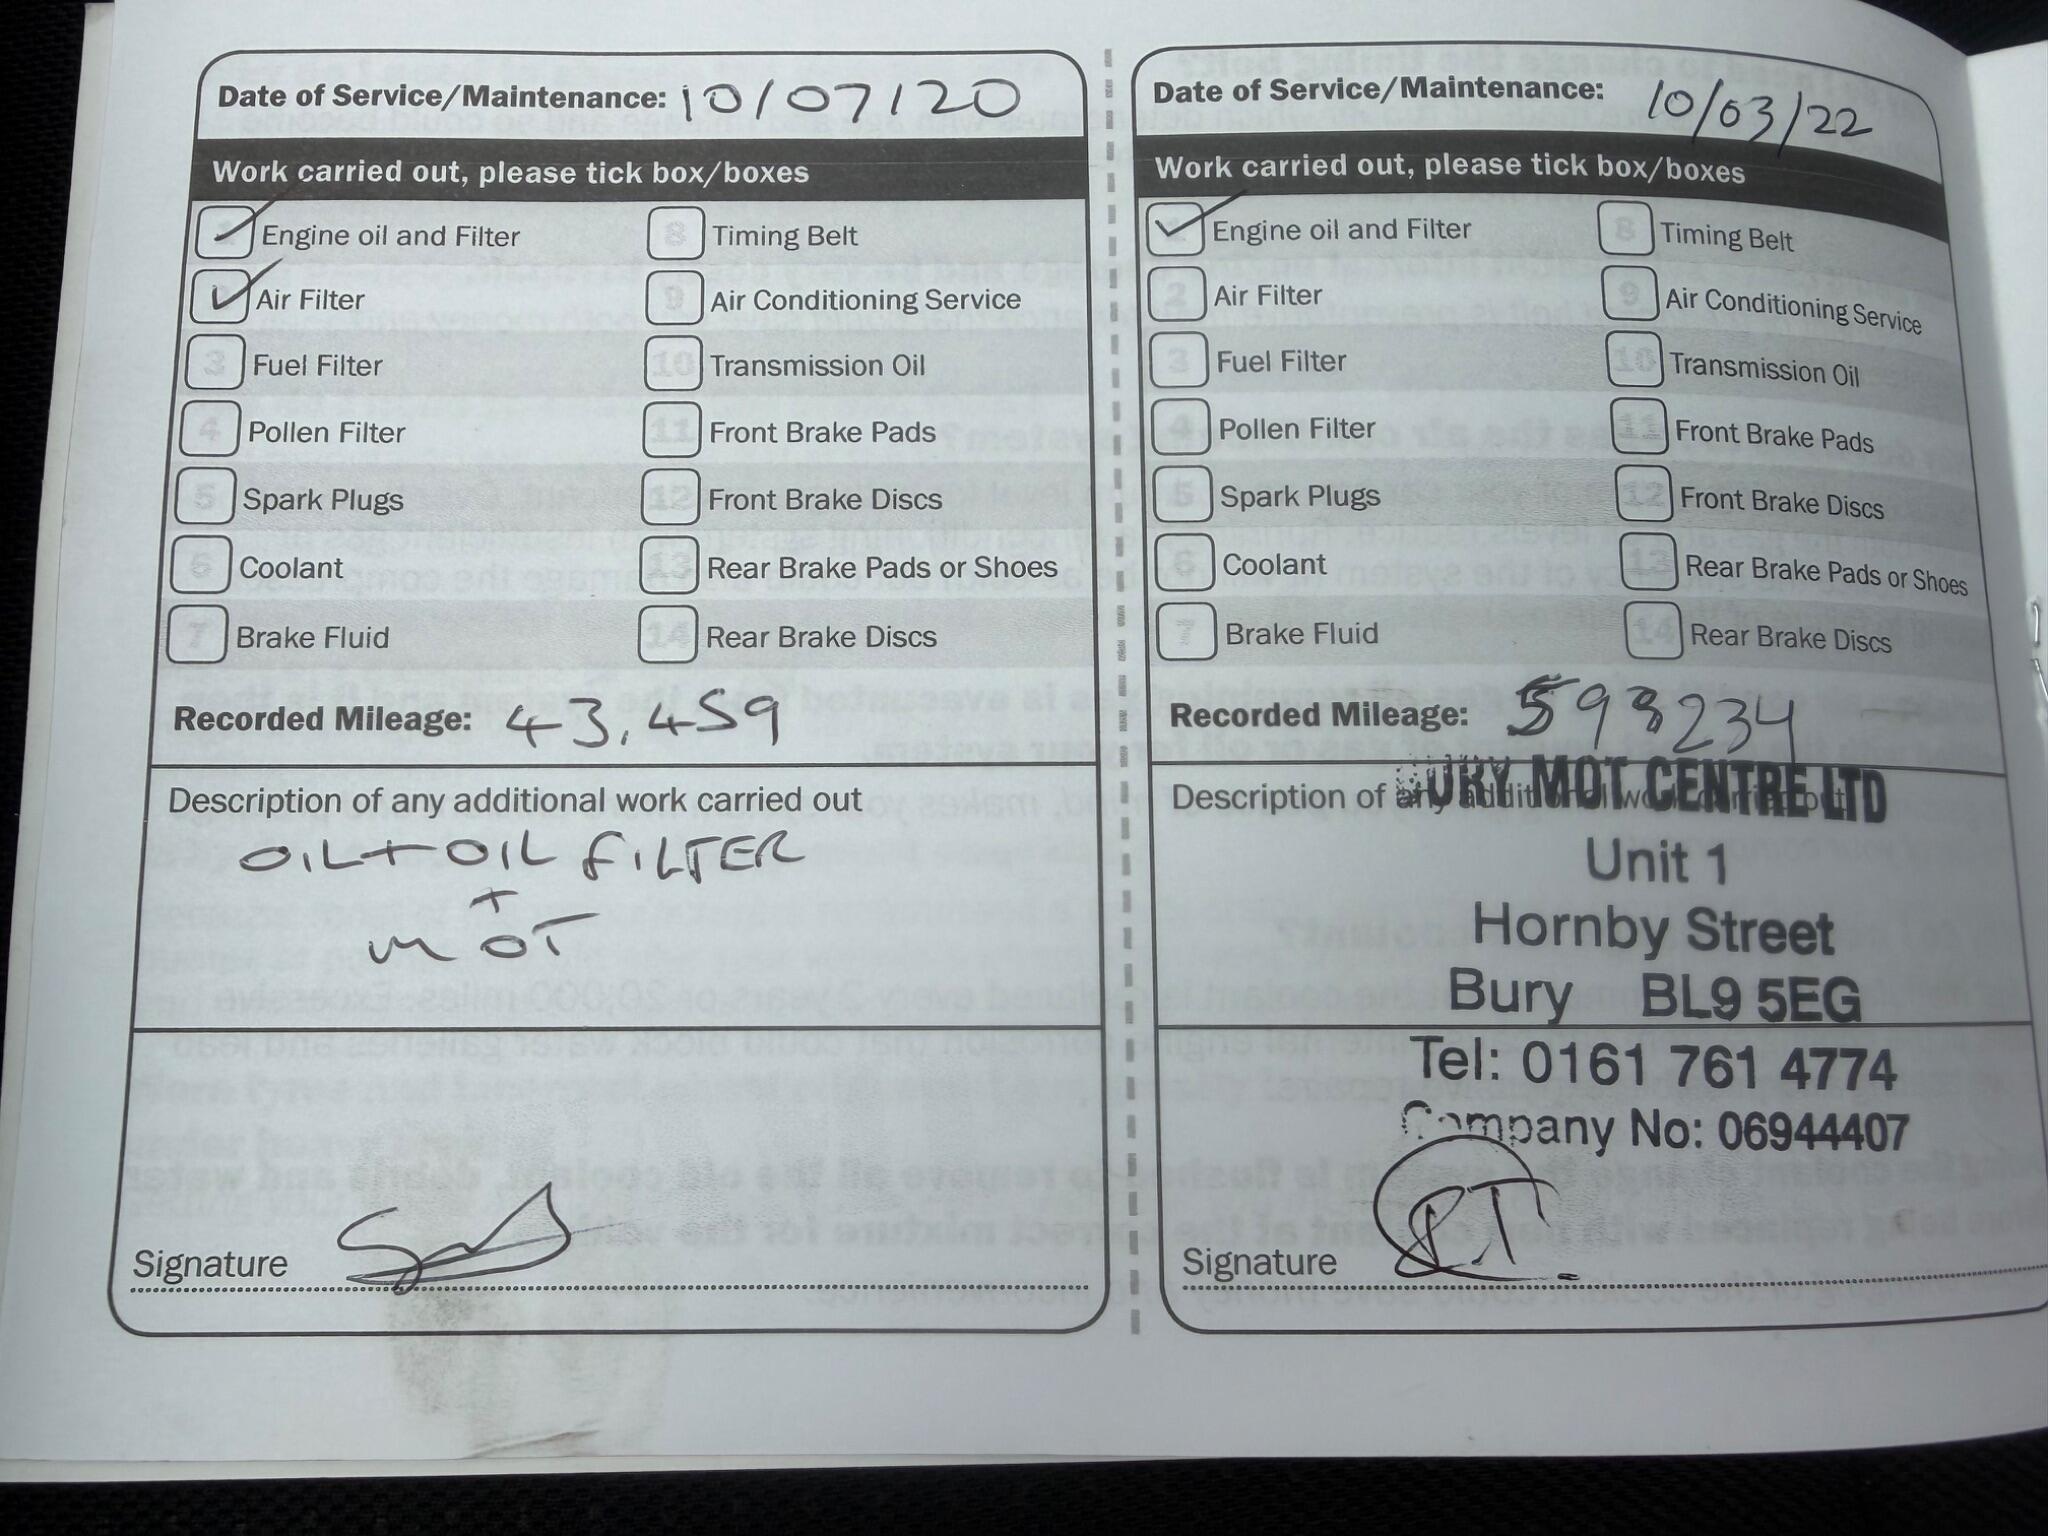 Date of Service/Maintenance: 10/07/20
Work carried out, please tick box/boxes
1 Engine oil and Filter
8 Timing Belt
Air Filter
9 Air Conditioning Service
3 Fuel Filter
10 Transmission Oil
4 Pollen Filter
11 Front Brake Pads
5 Spark Plugs
12 Front Brake Discs
6 Coolant
13 Rear Brake Pads or Shoes
7 Brake Fluid
14 Rear Brake Discs
Recorded Mileage: 43,459
Description of any additional work carried out
OIL + OIL FILTER
+
MOT
Signature
Date of Service/Maintenance: 10/03/22
Work carried out, please tick box/boxes
1 Engine oil and Filter
8 Timing Belt
2 Air Filter
9 Air Conditioning Service
3 Fuel Filter
10 Transmission Oil
4 Pollen Filter
11 Front Brake Pads
5 Spark Plugs
12 Front Brake Discs
6 Coolant
13 Rear Brake Pads or Shoes
7 Brake Fluid
14 Rear Brake Discs
Recorded Mileage: 598234
Description of any additional work carried out
URY MOT CENTRE LTD
Unit 1
Hornby Street
Bury BL9 5EG
Tel: 0161 761 4774
Company No: 06944407
Signature